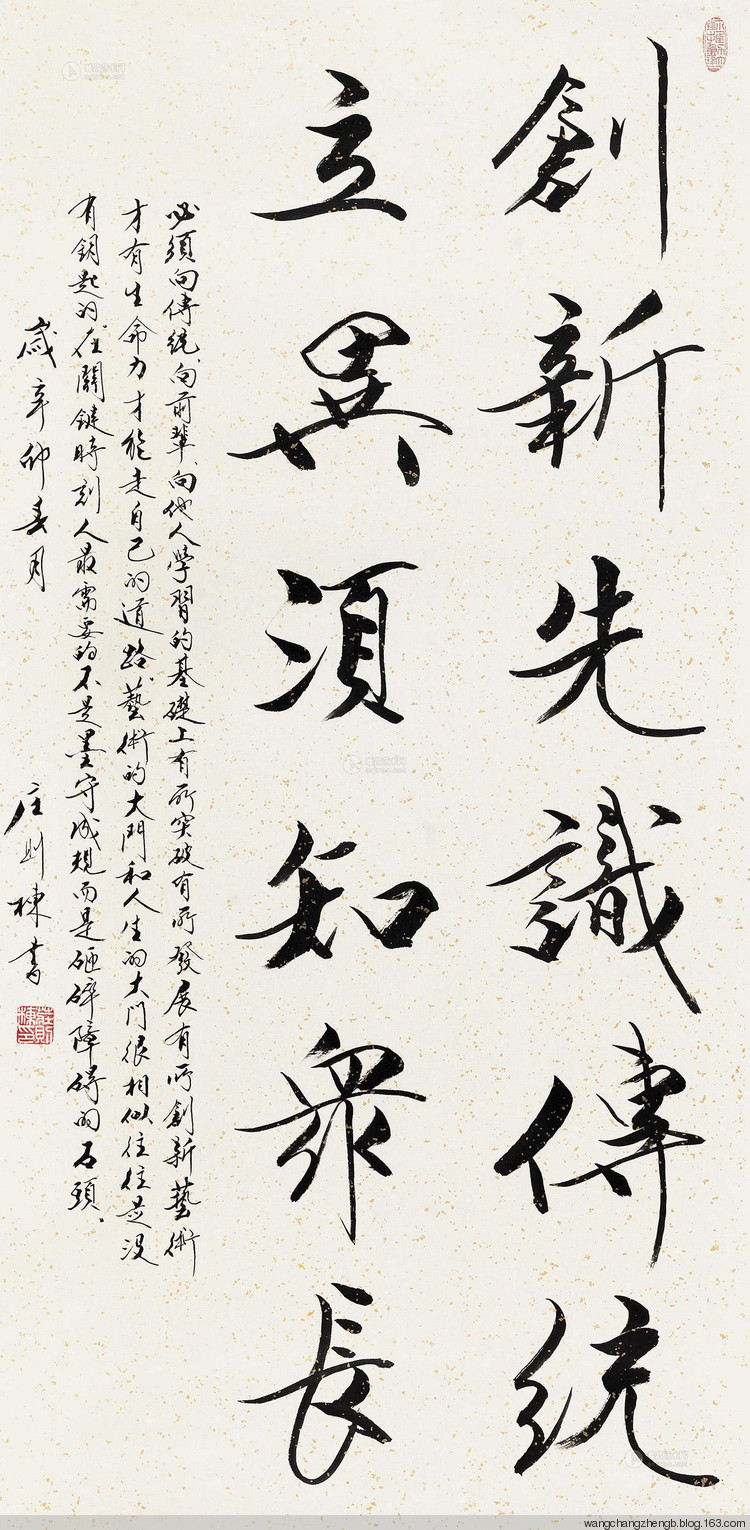 創新先識傳統
立異須知衆長
必須向傳統、向前輩、向他人學習的基礎上有所突破有所發展有所創新藝術
才有生命力才能走自己的道路。藝術的大門和人生的大門很相似往往是沒
有鑰匙的。在關鍵時刻人最需要的不是墨守成規而是砸碎障碍的石頭。
歲辛卯春月
庄則棟書
莊則棟印
wangchangzhengb.blog.163.com